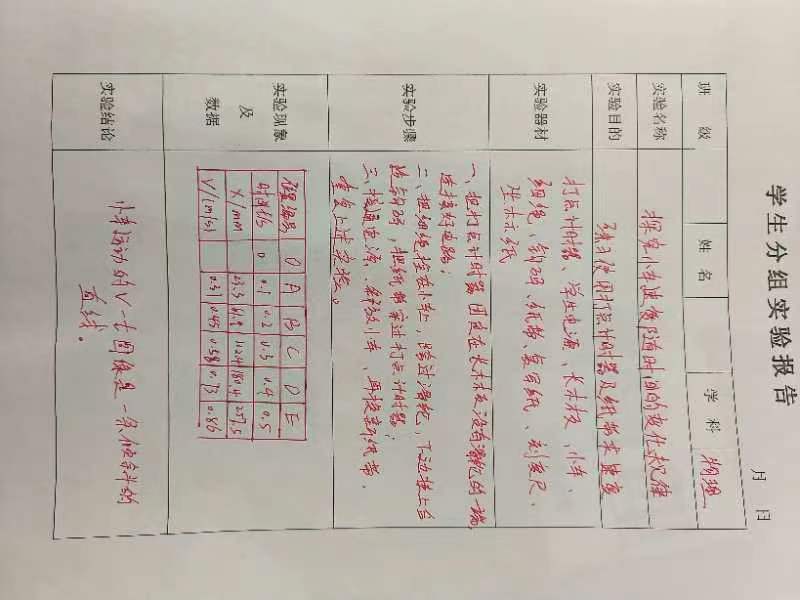 学生分组实验报告
月 日
班 级 姓 名 学 科 物理
实验名称 探究小车速度随时间的变化规律
实验目的 练习使用打点计时器及纸带求速度
实验器材 打点计时器、学生电源、长木板、小车、
细绳、钩码、纸带、复写纸、刻度尺、
坐标纸
实验步骤 一、把打点计时器固定在长木板没有滑轮的一端,
连接好电路;
二、把细绳拴在小车,跨过滑轮,下边挂上合
适钩码,把纸带穿过打点计时器;
三、接通电源、释放小车、再换新纸带,
重复上述实验。
实验现象
及
数据
位置编号 O A B C D E
时间t/s 0 0.1 0.2 0.3 0.4 0.5
x/mm 23.3 112.4 180.4 257.5
V/(m/s) 0.31 0.45 0.58 0.73 0.86
实验结论 小车运动的V-t图像是一条倾斜的
直线。